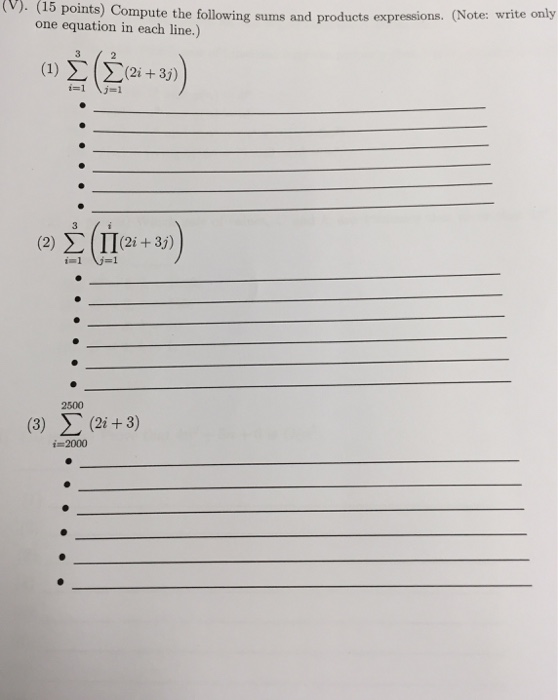 (V). (15 points) Compute the following sums and products expressions. (Note: write only
one equation in each line.)
(1) \sum_{i=1}^{3} \left( \sum_{j=1}^{2} (2i + 3j) \right)
•
•
•
•
•
•
(2) \sum_{i=1}^{3} \left( \prod_{j=1}^{i} (2i + 3j) \right)
•
•
•
•
•
•
(3) \sum_{i=2000}^{2500} (2i + 3)
•
•
•
•
•
•